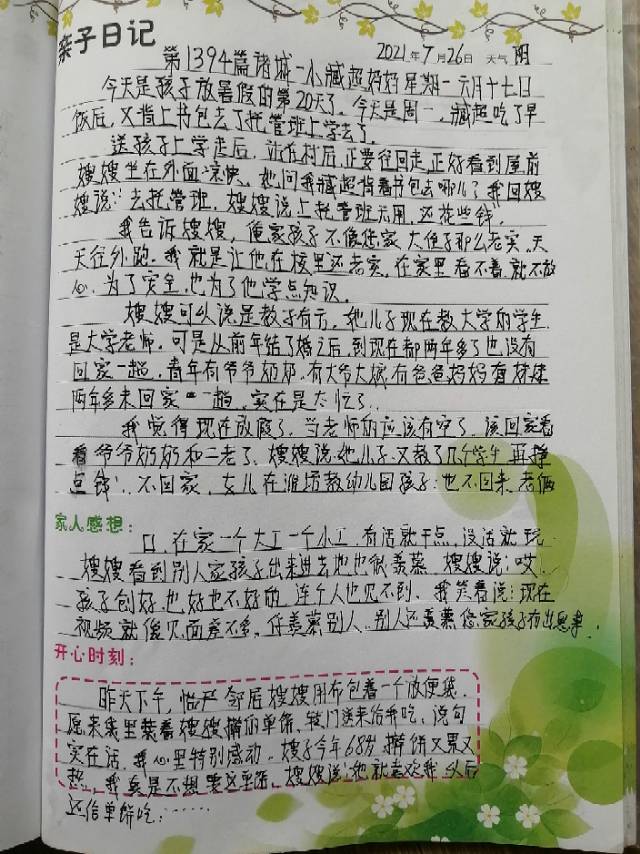 亲子日记
2021年7月26日 天气 阴
第1394篇诸城一小臧超妈妈星期一六月十七日
今天是孩子放暑假的第20天了。今天是周一,臧超吃了早
饭后,又背上书包去了托管班上学去了。
送孩子上学走后,站在村后,正要往回走,正好看到屋前
嫂嫂坐在外面凉快。她问我臧超背着书包去哪儿了我回嫂
嫂说:去托管班,嫂嫂说上托管班无用,还花些钱,
我告诉嫂嫂,俺家孩子不像您家大侄子那么老实,天
天往外跑。我就是让他在校里还老实,在家里看不着,就不放
心,为了安全,也为了他学点知识。
嫂嫂可以说是教子有方,她儿子现在教大学的学生,
是大学老师。可是从前年结了婚之后,到现在都两年多了也没有
回家一趟,青年有爷爷奶奶,有大爷大娘,有爸爸妈妈有
两年多未回家一趟,实在是太忙了.
我觉得现在放假了,当老师的应该有空了,该回家看
看爷爷奶奶和二老了,嫂嫂说她儿子又教了几个学生,再挣
点钱,不回家,女儿在潍坊教幼儿园孩子,也不回来,老俩
家人感想:
口,在家一个大工一个小工,有活就干点,没活就玩
嫂嫂看到别人家孩子出来进去她也很羡慕,嫂嫂说:哎,
孩子创好也好也不好的,连个人也见不到,我笑着说:现在
视频就像见面差不多,你羡慕别人,别人还羡慕您家孩子有出息来,
开心时刻:
昨天下午,临严邻居嫂嫂用布包着一个方便袋,
原来袋里装着嫂嫂擀的单饼,专门送来给我吃,说句
实在话,我心里特别感动,嫂子今年68岁,擀饼又累又
热,我真是不想要这单饼,嫂嫂说:她就喜欢我,以后
还给单饼吃,……